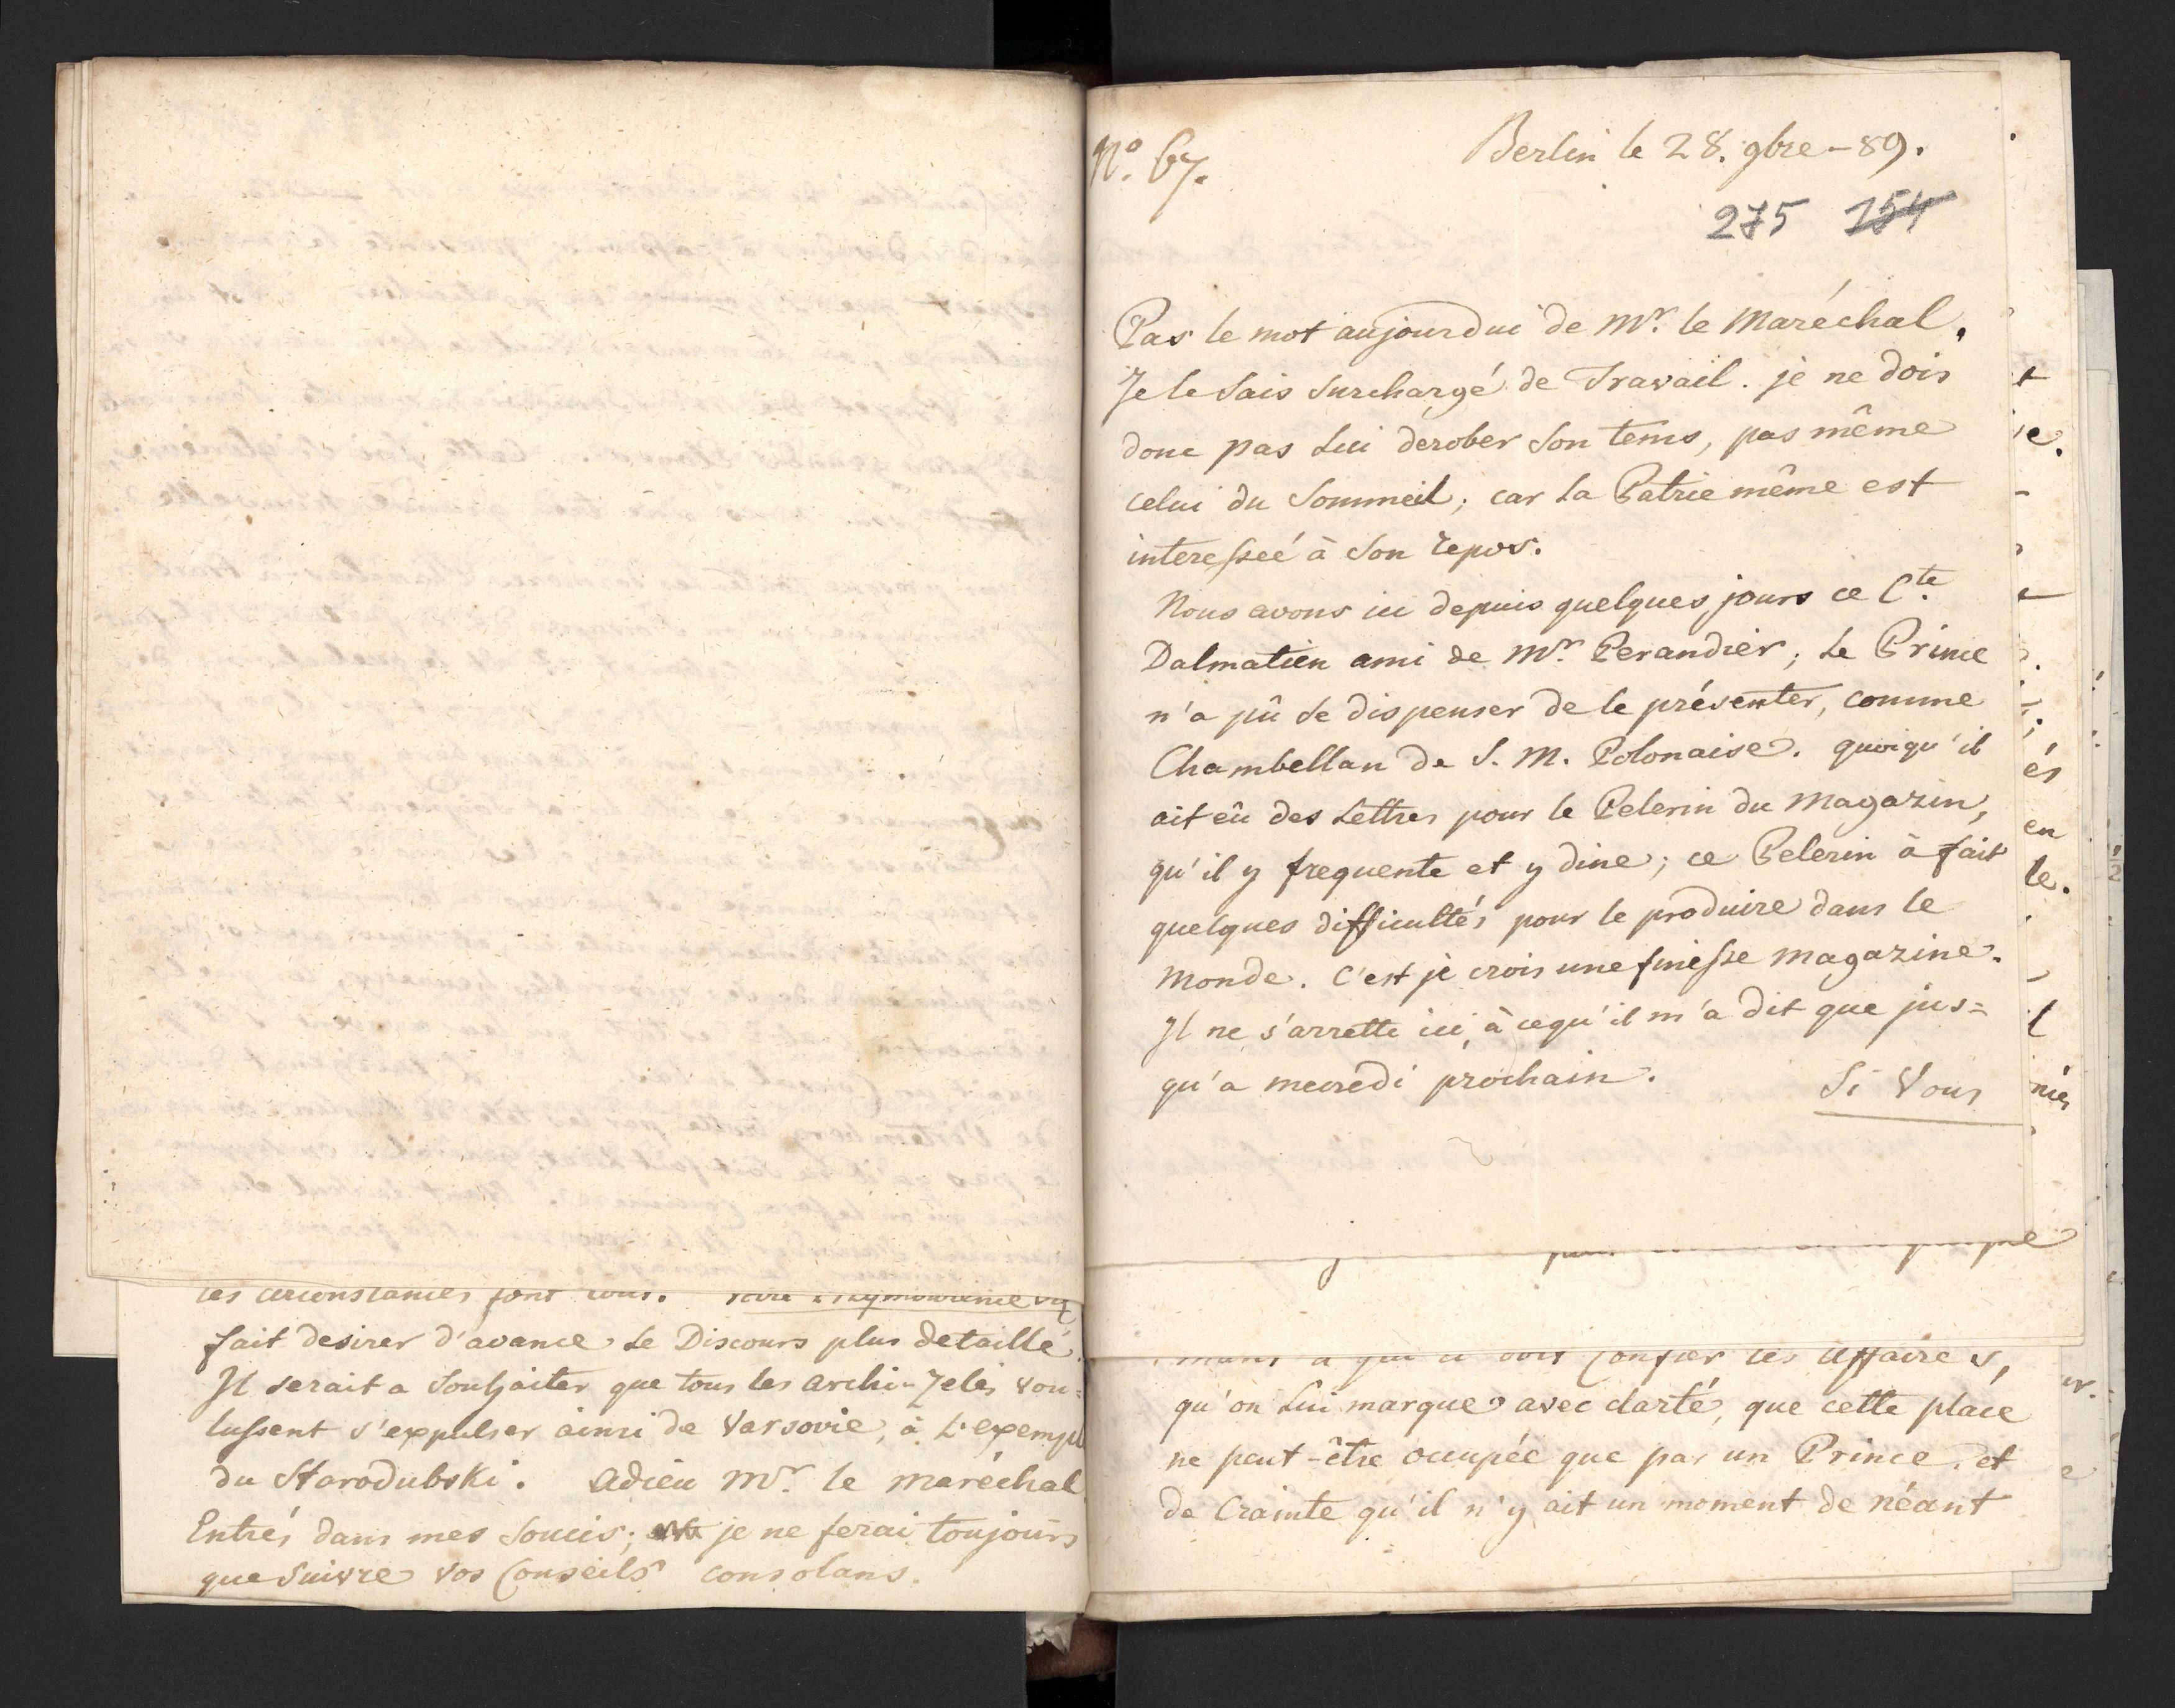 ces circonstances font tout.
fait desirer d'avance le Discours plus detaillé.
Il serait a Souhaiter que tous les archi-Zelés vou=
lussent s'expulser ainsi de Varsovie, à L'exempl
du Starodubski. Adieu Mr. le Maréchal
Entrés dans mes Soucis; je ne ferai toujours
que suivre vos Conseils consolans.
No. 67.
Berlin le 28. 9bre-89.
275 154
Pas le mot aujourdui de Mr. le Maréchal.
Je le Sais Surchargé de Travail. je ne dois
donc pas Lui derober Son tems, pas même
celui du Sommeil; car La Patrie même est
interesseé à Son repos.
Nous avons ici depuis quelques jours ce Cte.
Dalmatien ami de Mr. Perandier; Le Prince
n'a pû se dispenser de le présenter, comme
Chambellan de S. M. Polonaise. quoiqu'il
ait eû des Lettres pour le Pelerin du Magazin,
qu'il y frequente et y dine; ce Pelerin à fait
quelques difficultés pour le produire dans le
Monde. C'est je crois une finesse magazine.
Il ne s'arrette ici, à cequ'il m'a dit que jus=
qu'a mecredi prochain.
Si Vous
a qui il doit Confier les affaires,
qu'on Lui marque avec clarté, que cette place
ne peut-être occupée que par un Prince, et
de Crainte qu'il n'y ait un moment de néant